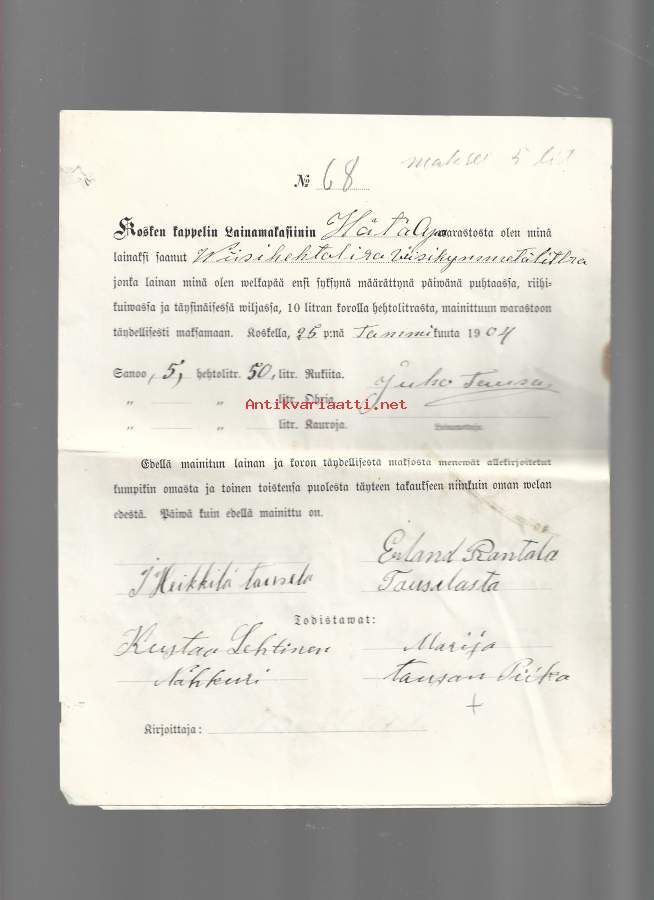 maksu 5 lit
№ 68
Kosken kappelin Lainamakasiinin Hätä Apu warastosta olen minä
lainaksi saanut Wiisihehtolitraa Wiisikymmentälitra
jonka lainan minä olen welkapää ensi syksynä määrättynä päiwänä puhtaassa, riihi-
kuiwassa ja täysinäisessä wiljassa, 10 litran korolla hehtolitrasta, mainittuun warastoon
täydellisesti maksamaan. Koskella, 25 p:nä Tammikuuta 1904
Sanoo, 5, hehtolitr. 50, litr. Rukiita. Juho Tausa
Antikvariaatti.net
„ „ litr. Ohria.
„ „ litr. Kauroja. Lainanottaja.
Edellä mainitun lainan ja koron täydellisestä maksosta menewät allekirjoitetut
kumpikin omasta ja toinen toistensa puolesta täyteen takaukseen niinkuin oman welan
edestä. Päiwä kuin edellä mainittu on.
J Heikkilä tausela Erland Rantala
Tauselasta
Todistawat:
Kustaa Lehtinen Marija
Nahkuri tausan Piika
+
Kirjoittaja: